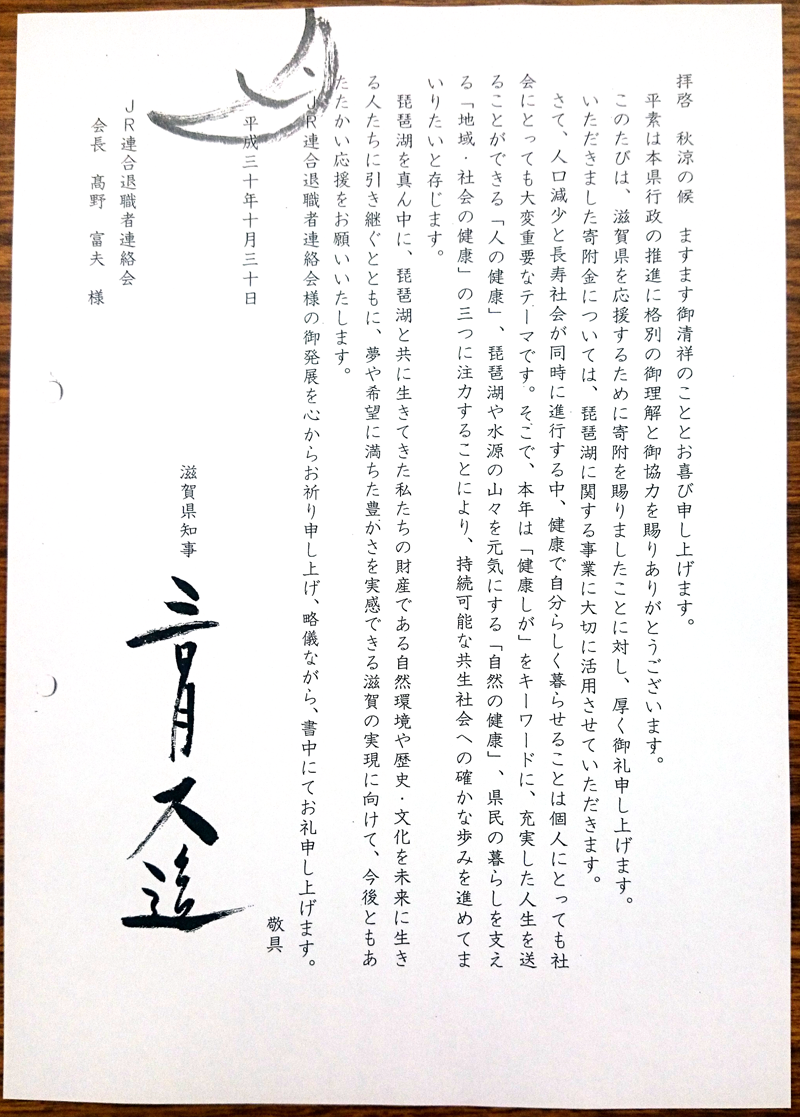 拝啓　秋涼の候　ますます御清祥のこととお喜び申し上げます。
平素は本県行政の推進に格別の御理解と御協力を賜りありがとうございます。
このたびは、滋賀県を応援するために寄附を賜りましたことに対し、厚く御礼申し上げます。
いただきました寄附金については、琵琶湖に関する事業に大切に活用させていただきます。
さて、人口減少と長寿社会が同時に進行する中、健康で自分らしく暮らせることは個人にとっても社
会にとっても大変重要なテーマです。そこで、本年は「健康しが」をキーワードに、充実した人生を送
ることができる「人の健康」、琵琶湖や水源の山々を元気にする「自然の健康」、県民の暮らしを支え
る「地域・社会の健康」の三つに注力することにより、持続可能な共生社会への確かな歩みを進めてま
いりたいと存じます。
琵琶湖を真ん中に、琵琶湖と共に生きてきた私たちの財産である自然環境や歴史・文化を未来に生き
る人たちに引き継ぐとともに、夢や希望に満ちた豊かさを実感できる滋賀の実現に向けて、今後ともあ
たたかい応援をお願いいたします。
ＪＲ連合退職者連絡会様の御発展を心からお祈り申し上げ、略儀ながら、書中にてお礼申し上げます。
敬具
平成三十年十月三十日
滋賀県知事　三日月大造
ＪＲ連合退職者連絡会
会長　髙野　富夫　様